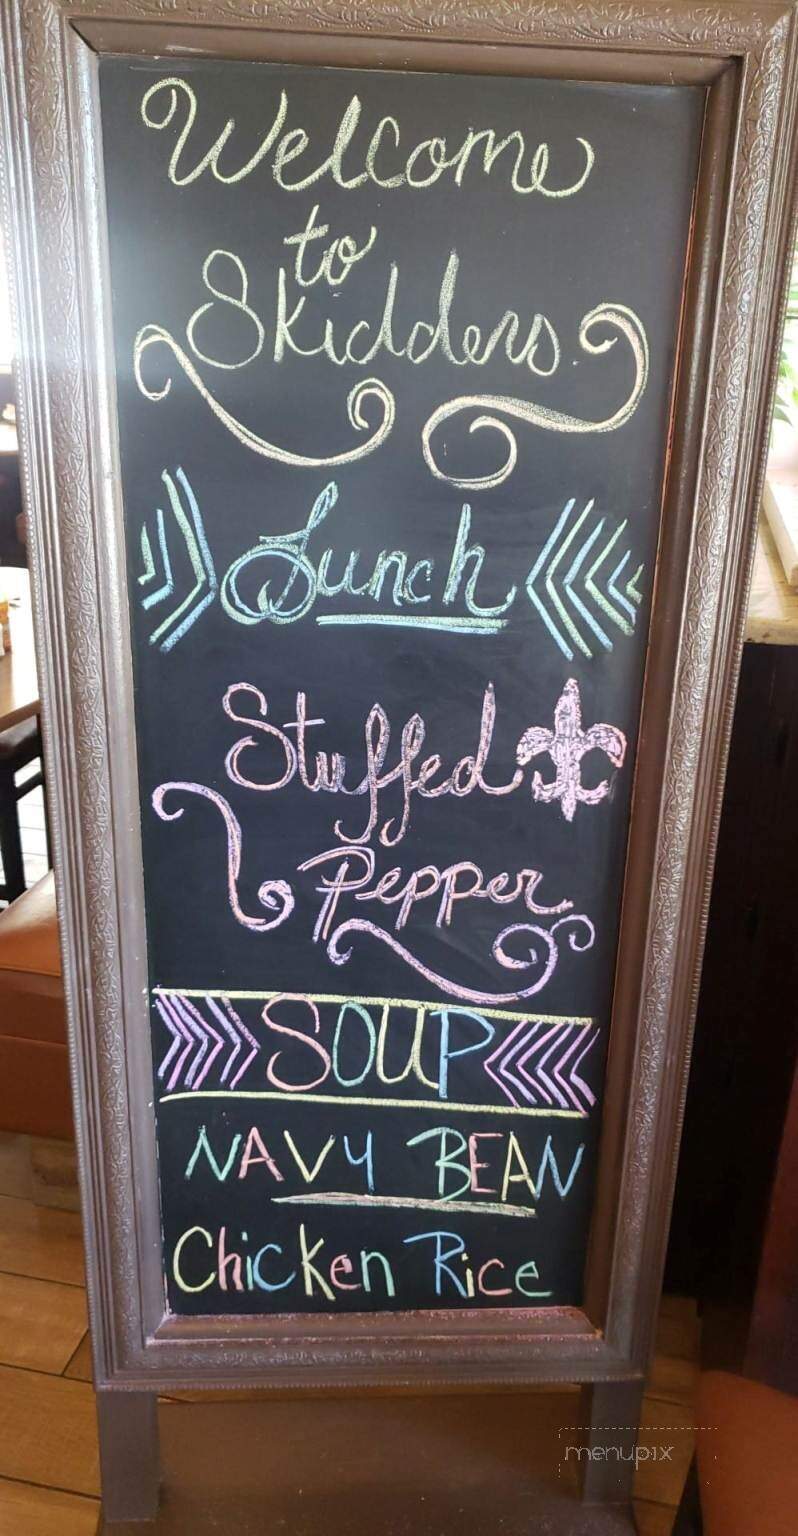 Welcome
to
Skidders
Lunch
Stuffed
Pepper
SOUP
NAVY BEAN
Chicken Rice
menupix